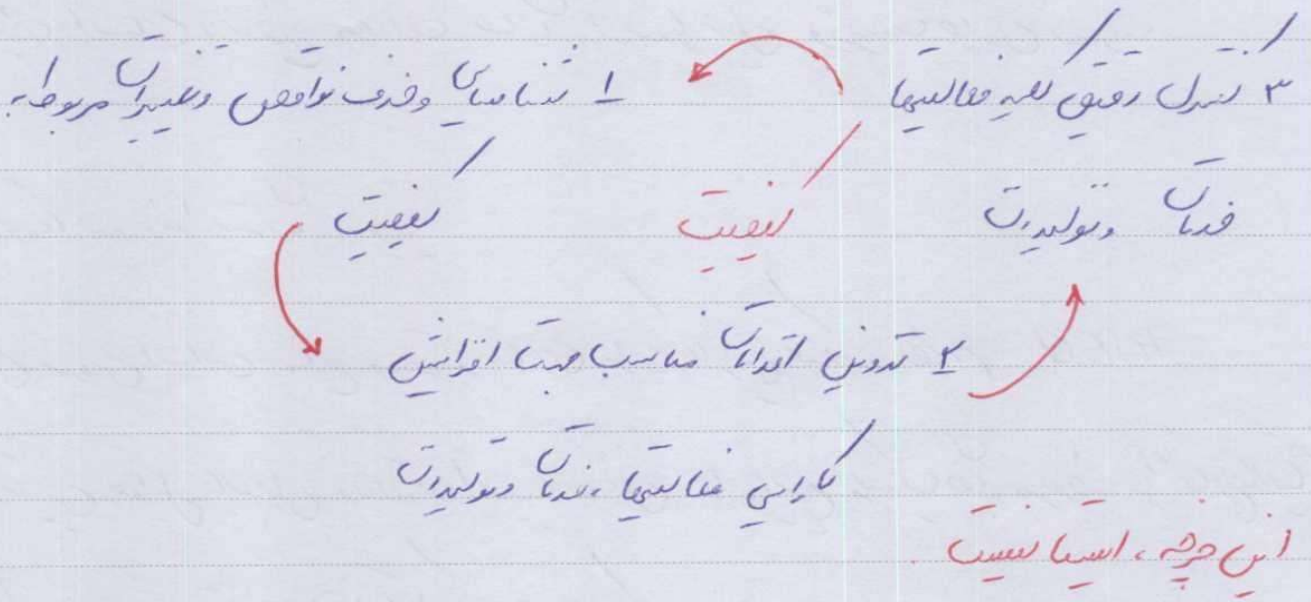 ۳ کنترل دقیق کلیه فعالیتها
خدمات و تولیدات
کیفیت
۱ شناسایی و حذف نواقص و تغییرات مربوط به
کیفیت
۲ تدوین اقدامات مناسب جهت افزایش
کارایی فعالیتها، خدمات و تولیدات
این چرخه، ایستا نیست.